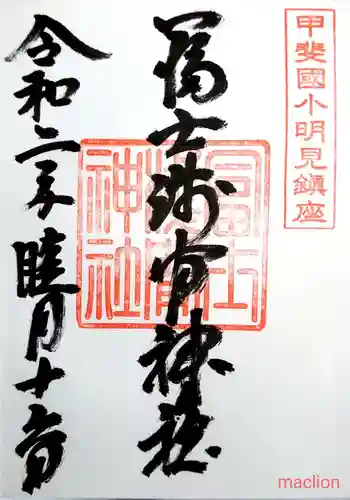 甲斐國小明見鎮座
冨士浅間神社
冨士
神社
令和二年睦月十日
maclion